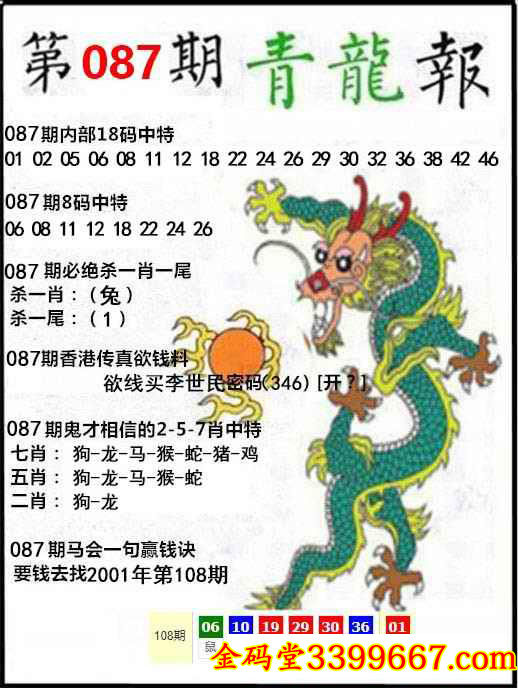 第087期青龍報
087期内部18码中特
01 02 05 06 08 11 12 18 22 24 26 29 30 32 36 38 42 46
087期8码中特
06 08 11 12 18 22 24 26
087期必绝杀一肖一尾
杀一肖：（兔）
杀一尾：（1）
087期香港传真欲钱料
欲线买李世民密码(346) [开？]
087期鬼才相信的2-5-7肖中特
七肖：狗-龙-马-猴-蛇-猪-鸡
五肖：狗-龙-马-猴-蛇
二肖：狗-龙
087期马会一句赢钱诀
要钱去找2001年第108期
108期 06 10 19 29 30 36 01
鼠
金码堂3399667.com